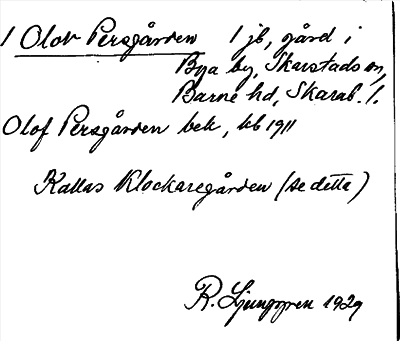 1 Olov Persgården 1 jb, gård i
Bya by, Skarstads sn,
Barne hd, Skarab. l.
Olof Persgården bek, kb 1911
Kallas Klockaregården (se detta)
R. Ljunggren 1929